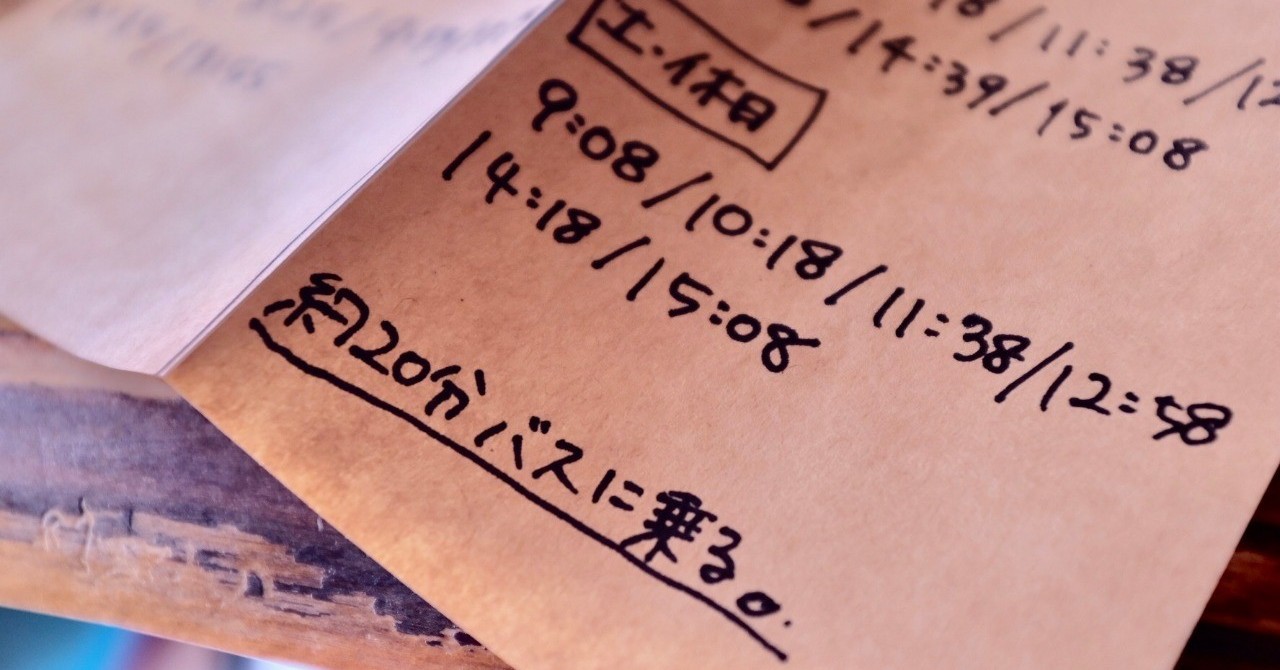 18/11:38/12
/14:39/15:08
土・休日
9:08/10:18/11:38/12:58
14:18/15:08
約20分バスに乗る。